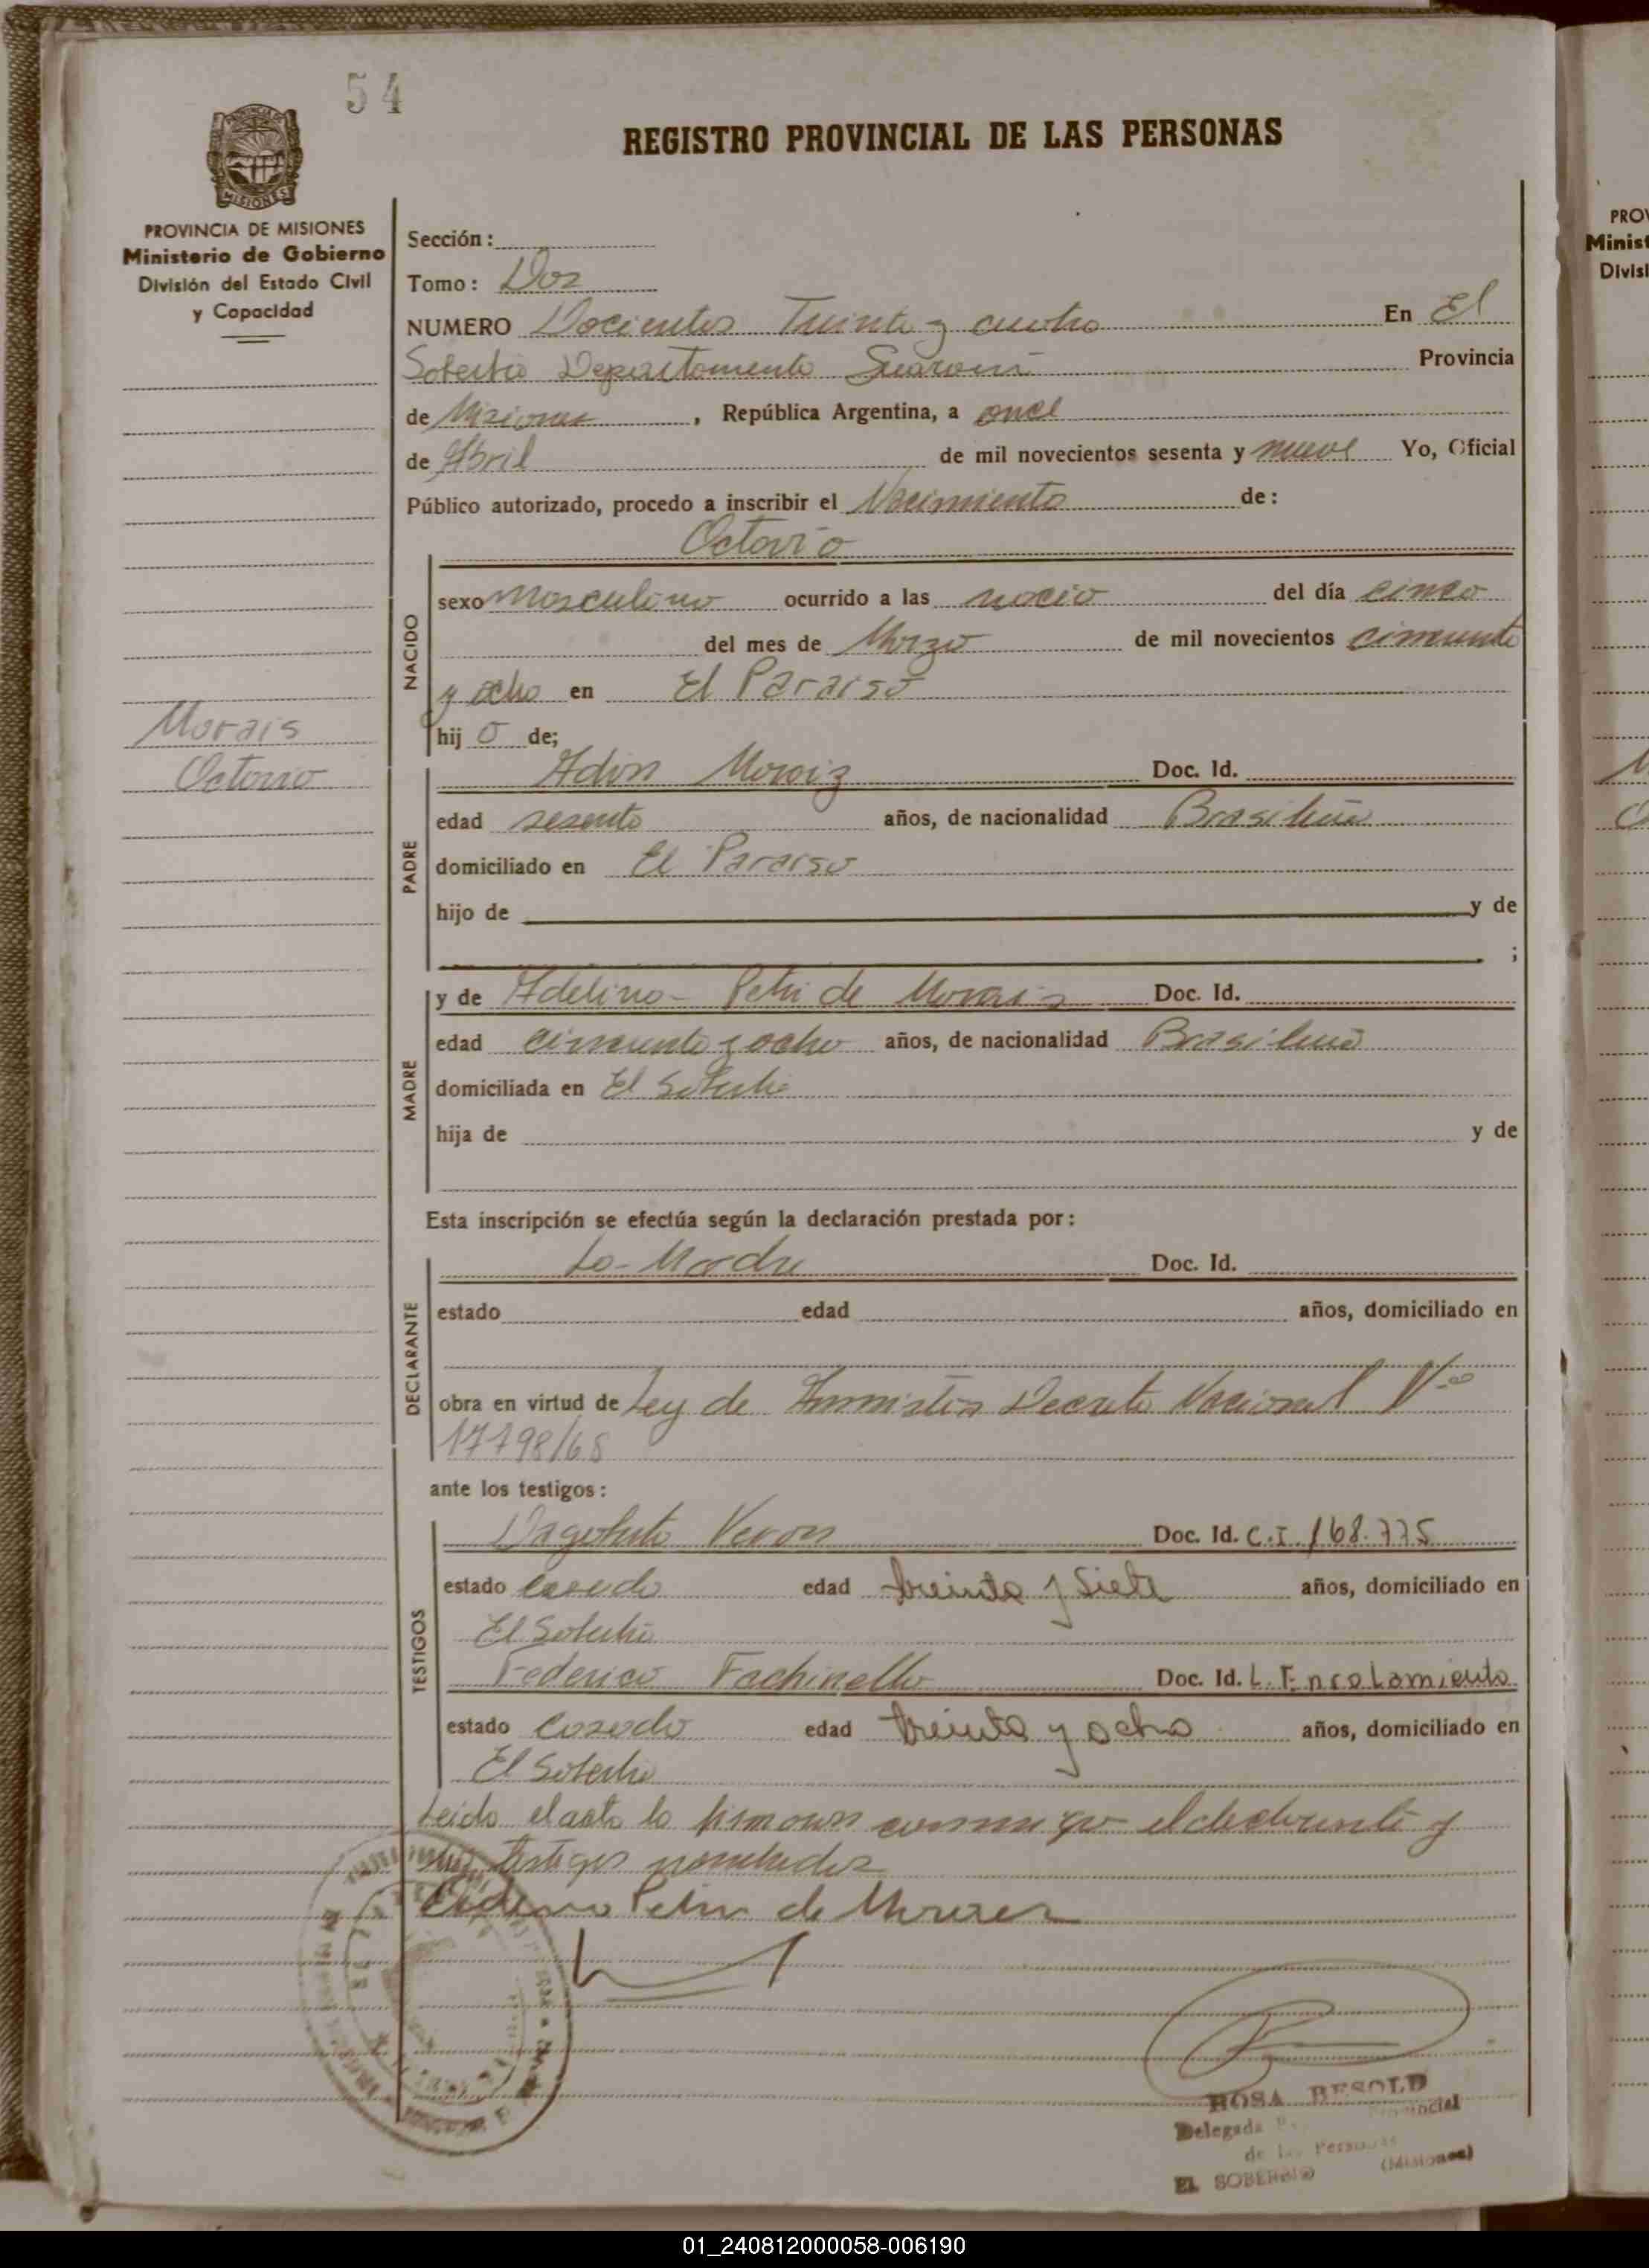 54
REGISTRO PROVINCIAL DE LAS PERSONAS
MISIONES
PROVINCIA DE MISIONES
Ministerio de Gobierno
División del Estado Civil
y Capacidad
Morais
Octavio
Sección:
Tomo: Dos
NUMERO Docientos Treinta y cuatro En El
Soberbio Departamento Guaraní Provincia
de Misiones, República Argentina, a once
de Abril de mil novecientos sesenta y nueve Yo, Oficial
Público autorizado, procedo a inscribir el Nacimiento de:
Octavio
NACIDO
sexo Masculino ocurrido a las nació del día cinco
del mes de Marzo de mil novecientos cincuenta
y ocho en El Paraiso
hijo de;
PADRE
Adin Moraiz Doc. Id.
edad sesenta años, de nacionalidad Brasileña
domiciliado en El Paraiso
hijo de y de
;
MADRE
y de Adelina - Petri de Morais Doc. Id.
edad cincuenta y ocho años, de nacionalidad Brasileña
domiciliada en El Soberbio
hija de y de
Esta inscripción se efectúa según la declaración prestada por:
DECLARANTE
La - Madre Doc. Id.
estado edad años, domiciliado en
obra en virtud de Ley de Amnistia Decreto Nacional Nº
17798/68
ante los testigos:
TESTIGOS
Dagoberto Veron Doc. Id. C.I. 168.775
estado casado edad treinta y siete años, domiciliado en
El Soberbio
Federico Fachinello Doc. Id. L. Enrolamiento
estado casado edad treinta y ocho años, domiciliado en
El Soberbio
Leida el acta la firman conmigo el declarante y
los testigos nombrados
Petri de Moraes
ROSA BESOLD
Delegada Provincial
de las Personas
EL SOBERBIO (Misiones)
PROV
Minist
Divisi
01_240812000058-006190